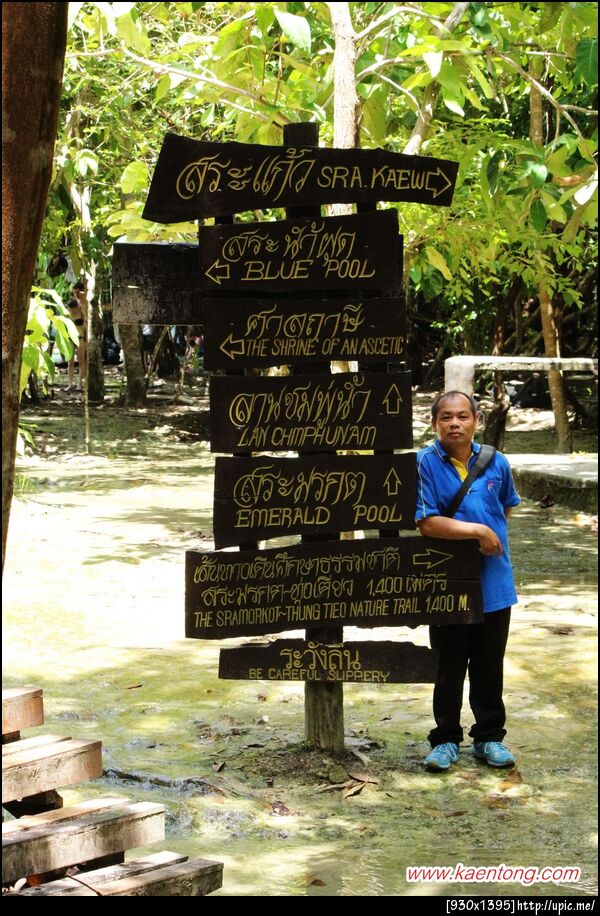 สระแก้ว SRA. KAEW
สระน้ำผุด
BLUE POOL
ศาลฤาษี
THE SHRINE OF AN ASCETIC
ลานชมพู่น้ำ
LAN CHMPHUNAM
สระมรกต
EMERALD POOL
เส้นทางเดินศึกษาธรรมชาติ
สระมรกต-ทุ่งเตียว 1,400 เมตร
THE SRAMORKOT-THUNG TIEO NATURE TRAIL 1,400 M.
ระวังลื่น
BE CAREFUL SLIPPERY
www.kaentong.com
[930x1395]http://upic.me/